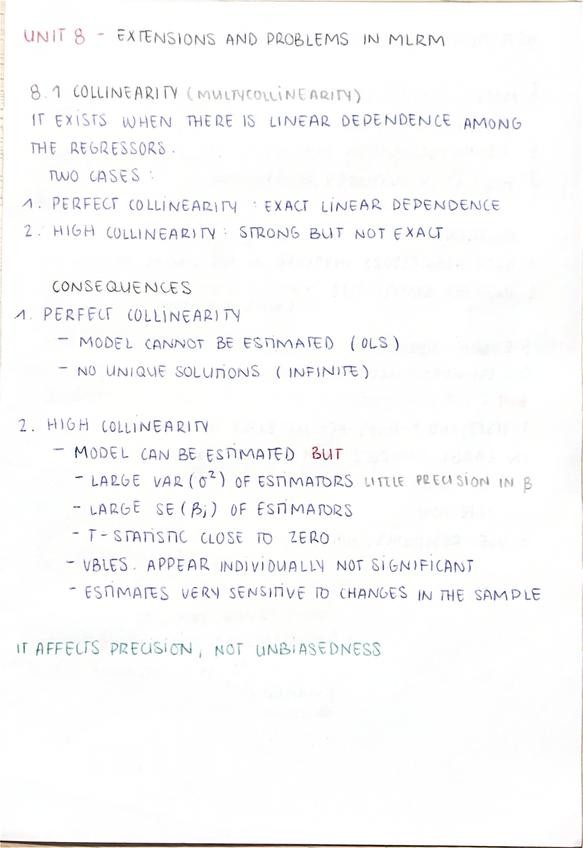 UNIT 8 - EXTENSIONS AND PROBLEMS IN MLRM
8.1 COLLINEARITY (MULTYCOLLINEARITY)
IT EXISTS WHEN THERE IS LINEAR DEPENDENCE AMONG
THE REGRESSORS.
TWO CASES:
1. PERFECT COLLINEARITY: EXACT LINEAR DEPENDENCE
2. HIGH COLLINEARITY: STRONG BUT NOT EXACT
CONSEQUENCES
1. PERFECT COLLINEARITY
- MODEL CANNOT BE ESTIMATED (OLS)
- NO UNIQUE SOLUTIONS (INFINITE)
2. HIGH COLLINEARITY
- MODEL CAN BE ESTIMATED BUT
- LARGE VAR(σ²) OF ESTIMATORS LITTLE PRECISION IN β
- LARGE SE(βj) OF ESTIMATORS
- T-STATISTIC CLOSE TO ZERO
- VBLES. APPEAR INDIVIDUALLY NOT SIGNIFICANT
- ESTIMATES VERY SENSITIVE TO CHANGES IN THE SAMPLE
IT AFFECTS PRECISION, NOT UNBIASEDNESS